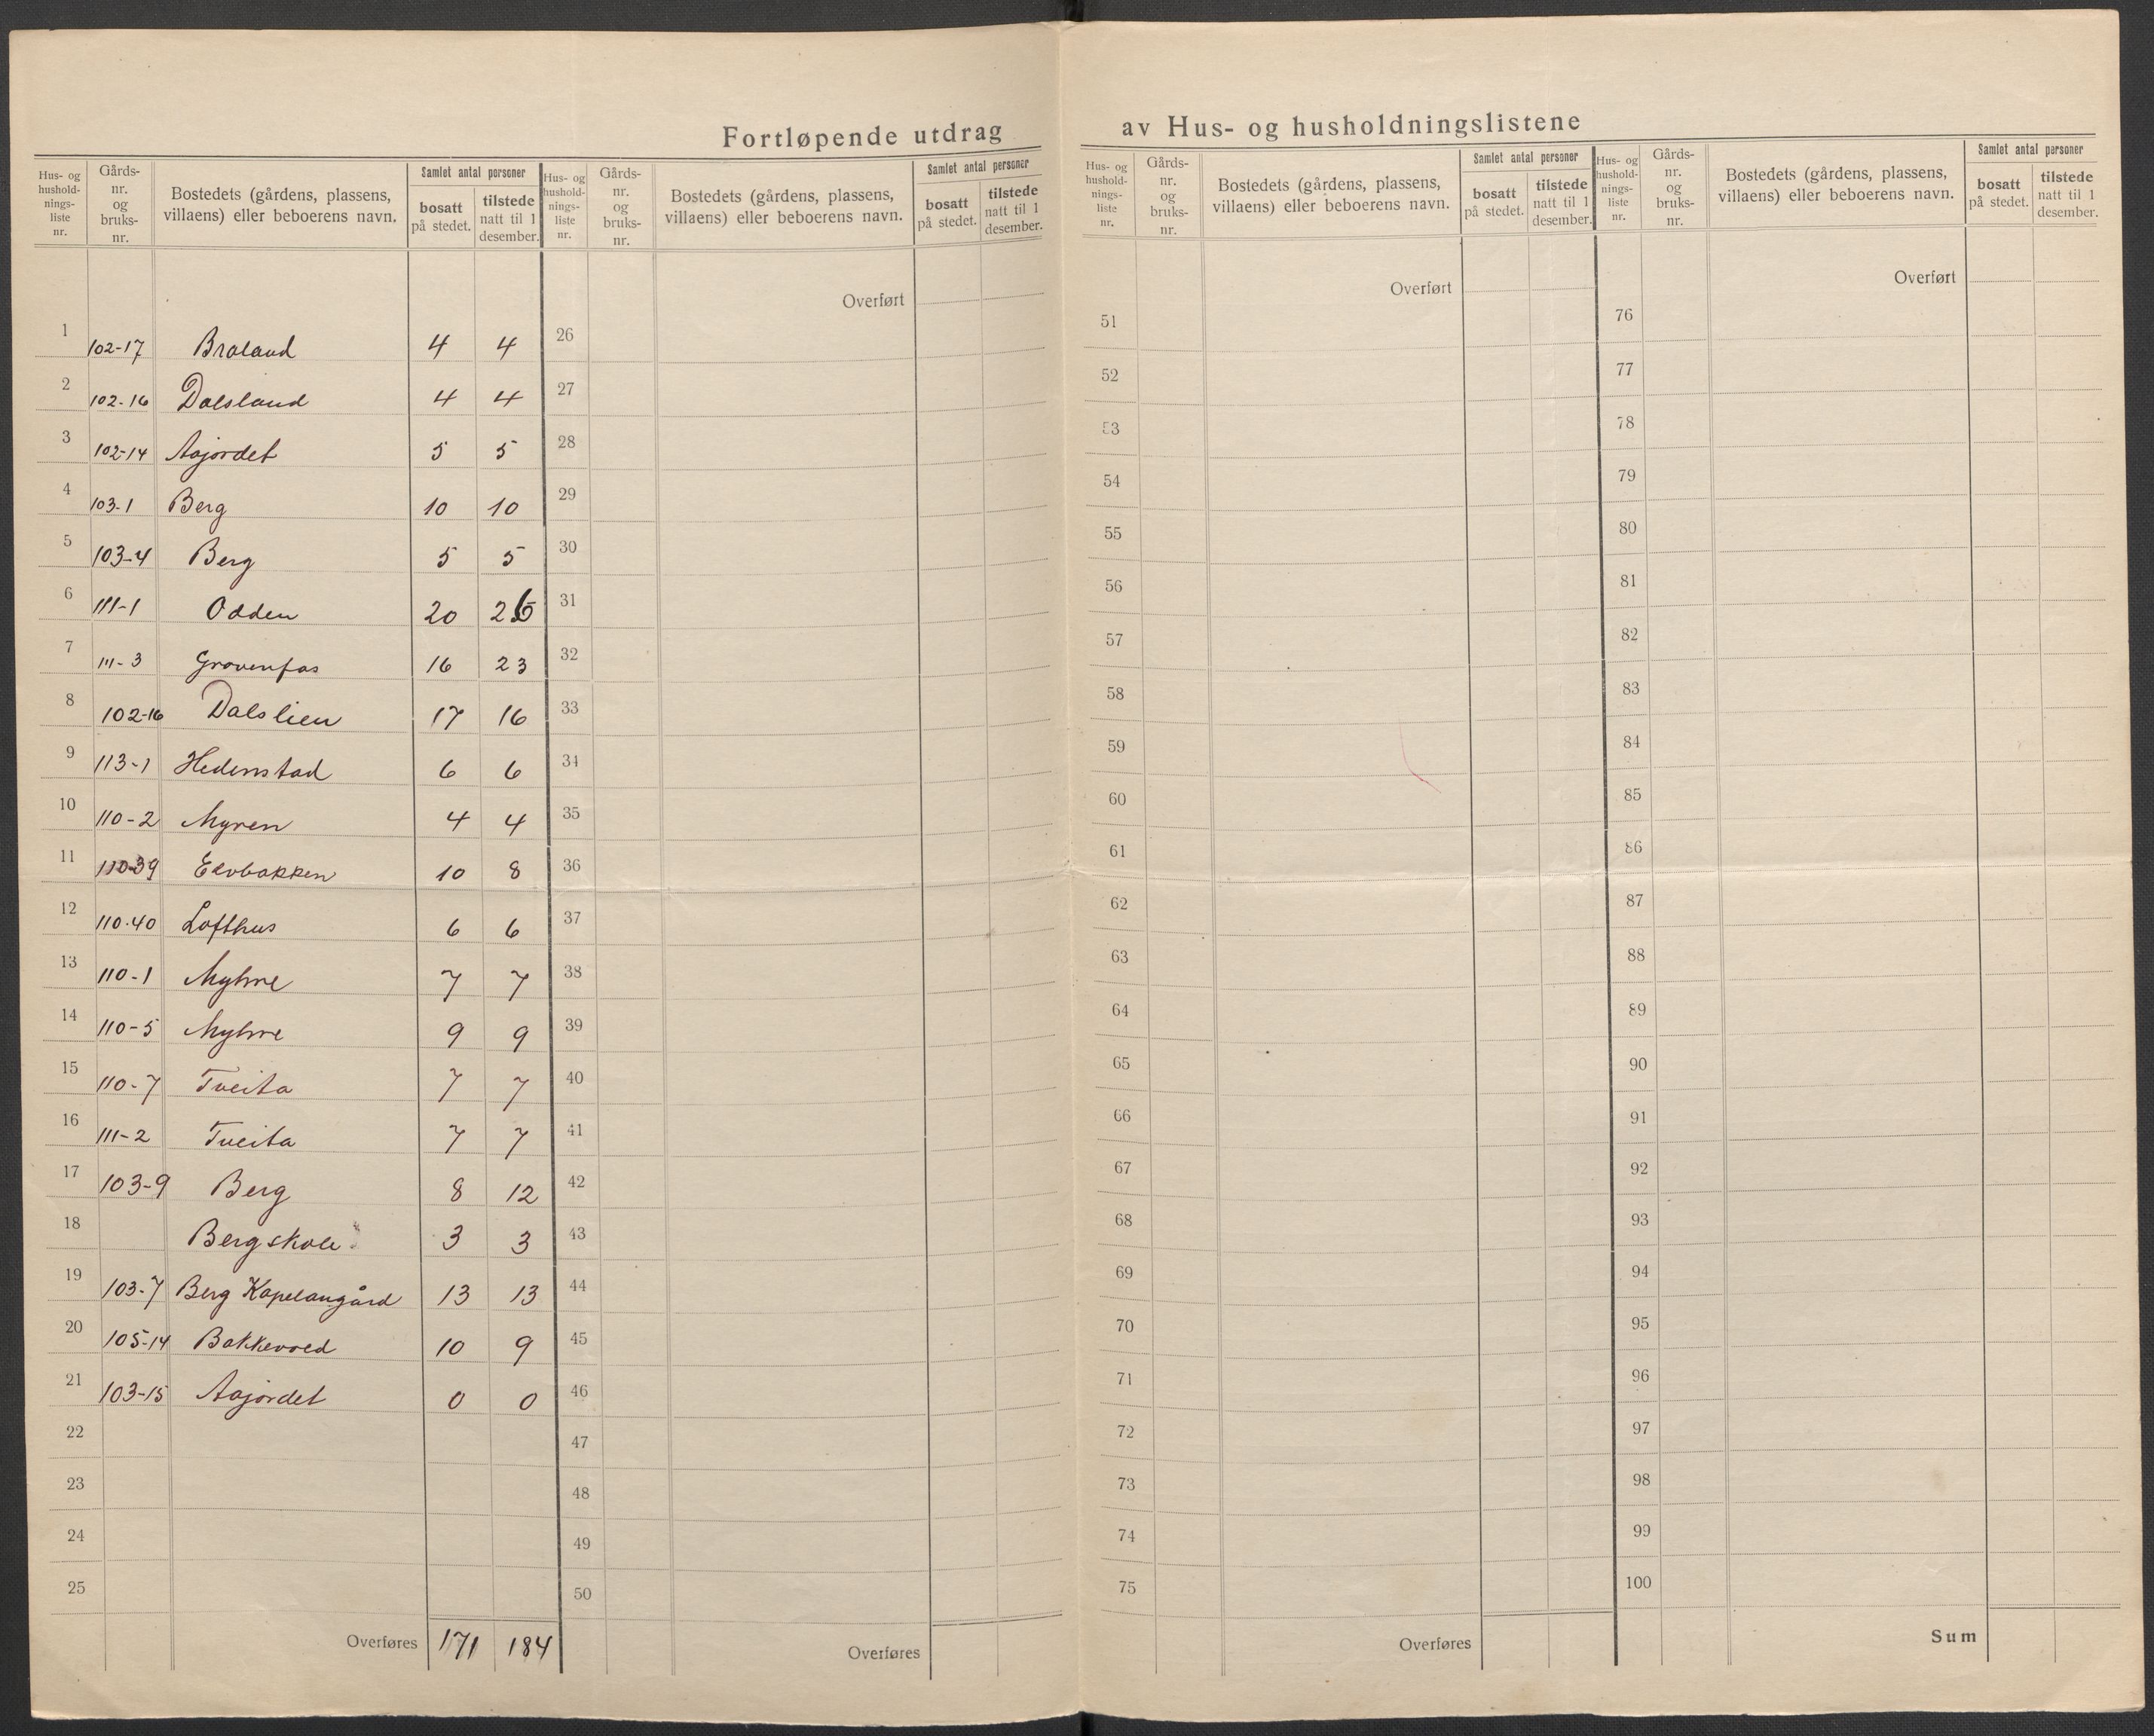 Fortløpende utdrag av Hus- og husholdningslistene
Hus- og hushold-nings-liste nr. | Gårds-nr. og bruks-nr. | Bostedets (gårdens, plassens, villaens) eller beboerens navn. | Samlet antal personer | bosatt på stedet. | tilstede natt til 1 desember.
1 102-17 Braland 4 4
2 102-16 Dalsland 4 4
3 102-14 Aajordet 5 5
4 103-1 Berg 10 10
5 103-4 Berg 5 5
6 111-1 Odden 20 26
7 111-3 Grovenfas 16 23
8 102-16 Dalslien 17 16
9 113-1 Hedenstad 6 6
10 110-2 Myren 4 4
11 110-39 Elvbakken 10 8
12 110-40 Lofthus 6 6
13 110-1 Myhre 7 7
14 110-5 Myhre 9 9
15 110-7 Tveita 7 7
16 111-2 Tveita 7 7
17 103-9 Berg 8 12
18 Berg skole 3 3
19 103-7 Berg Kapelangård 13 13
20 105-14 Bakkevold 10 9
21 103-15 Aajordet 0 0
22
23
24
25
Overføres 171 184
Hus- og hushold-nings-liste nr. | Gårds-nr. og bruks-nr. | Bostedets (gårdens, plassens, villaens) eller beboerens navn. | Samlet antal personer | bosatt på stedet. | tilstede natt til 1 desember.
Overført
26
27
28
29
30
31
32
33
34
35
36
37
38
39
40
41
42
43
44
45
46
47
48
49
50
Overføres
Hus- og hushold-nings-liste nr. | Gårds-nr. og bruks-nr. | Bostedets (gårdens, plassens, villaens) eller beboerens navn. | Samlet antal personer | bosatt på stedet. | tilstede natt til 1 desember.
Overført
51
52
53
54
55
56
57
58
59
60
61
62
63
64
65
66
67
68
69
70
71
72
73
74
75
Overføres
Hus- og hushold-nings-liste nr. | Gårds-nr. og bruks-nr. | Bostedets (gårdens, plassens, villaens) eller beboerens navn. | Samlet antal personer | bosatt på stedet. | tilstede natt til 1 desember.
Overført
76
77
78
79
80
81
82
83
84
85
86
87
88
89
90
91
92
93
94
95
96
97
98
99
100
Sum